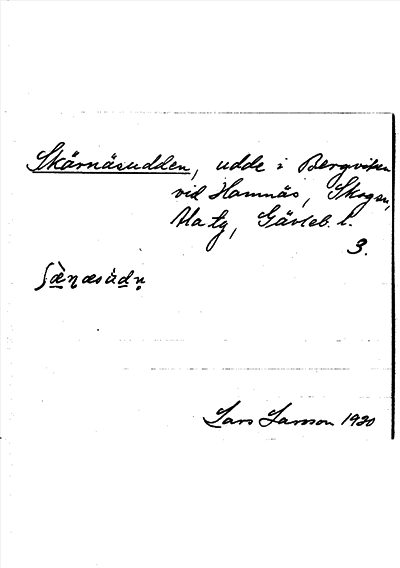 Skärnäsudden, udde i Bergviken
vid Hamnäs, Skogsn,
Ala tg, Gävleb. l.
3.
ʃæ̀ɳæsùdn̥
Lars Larsson 1920